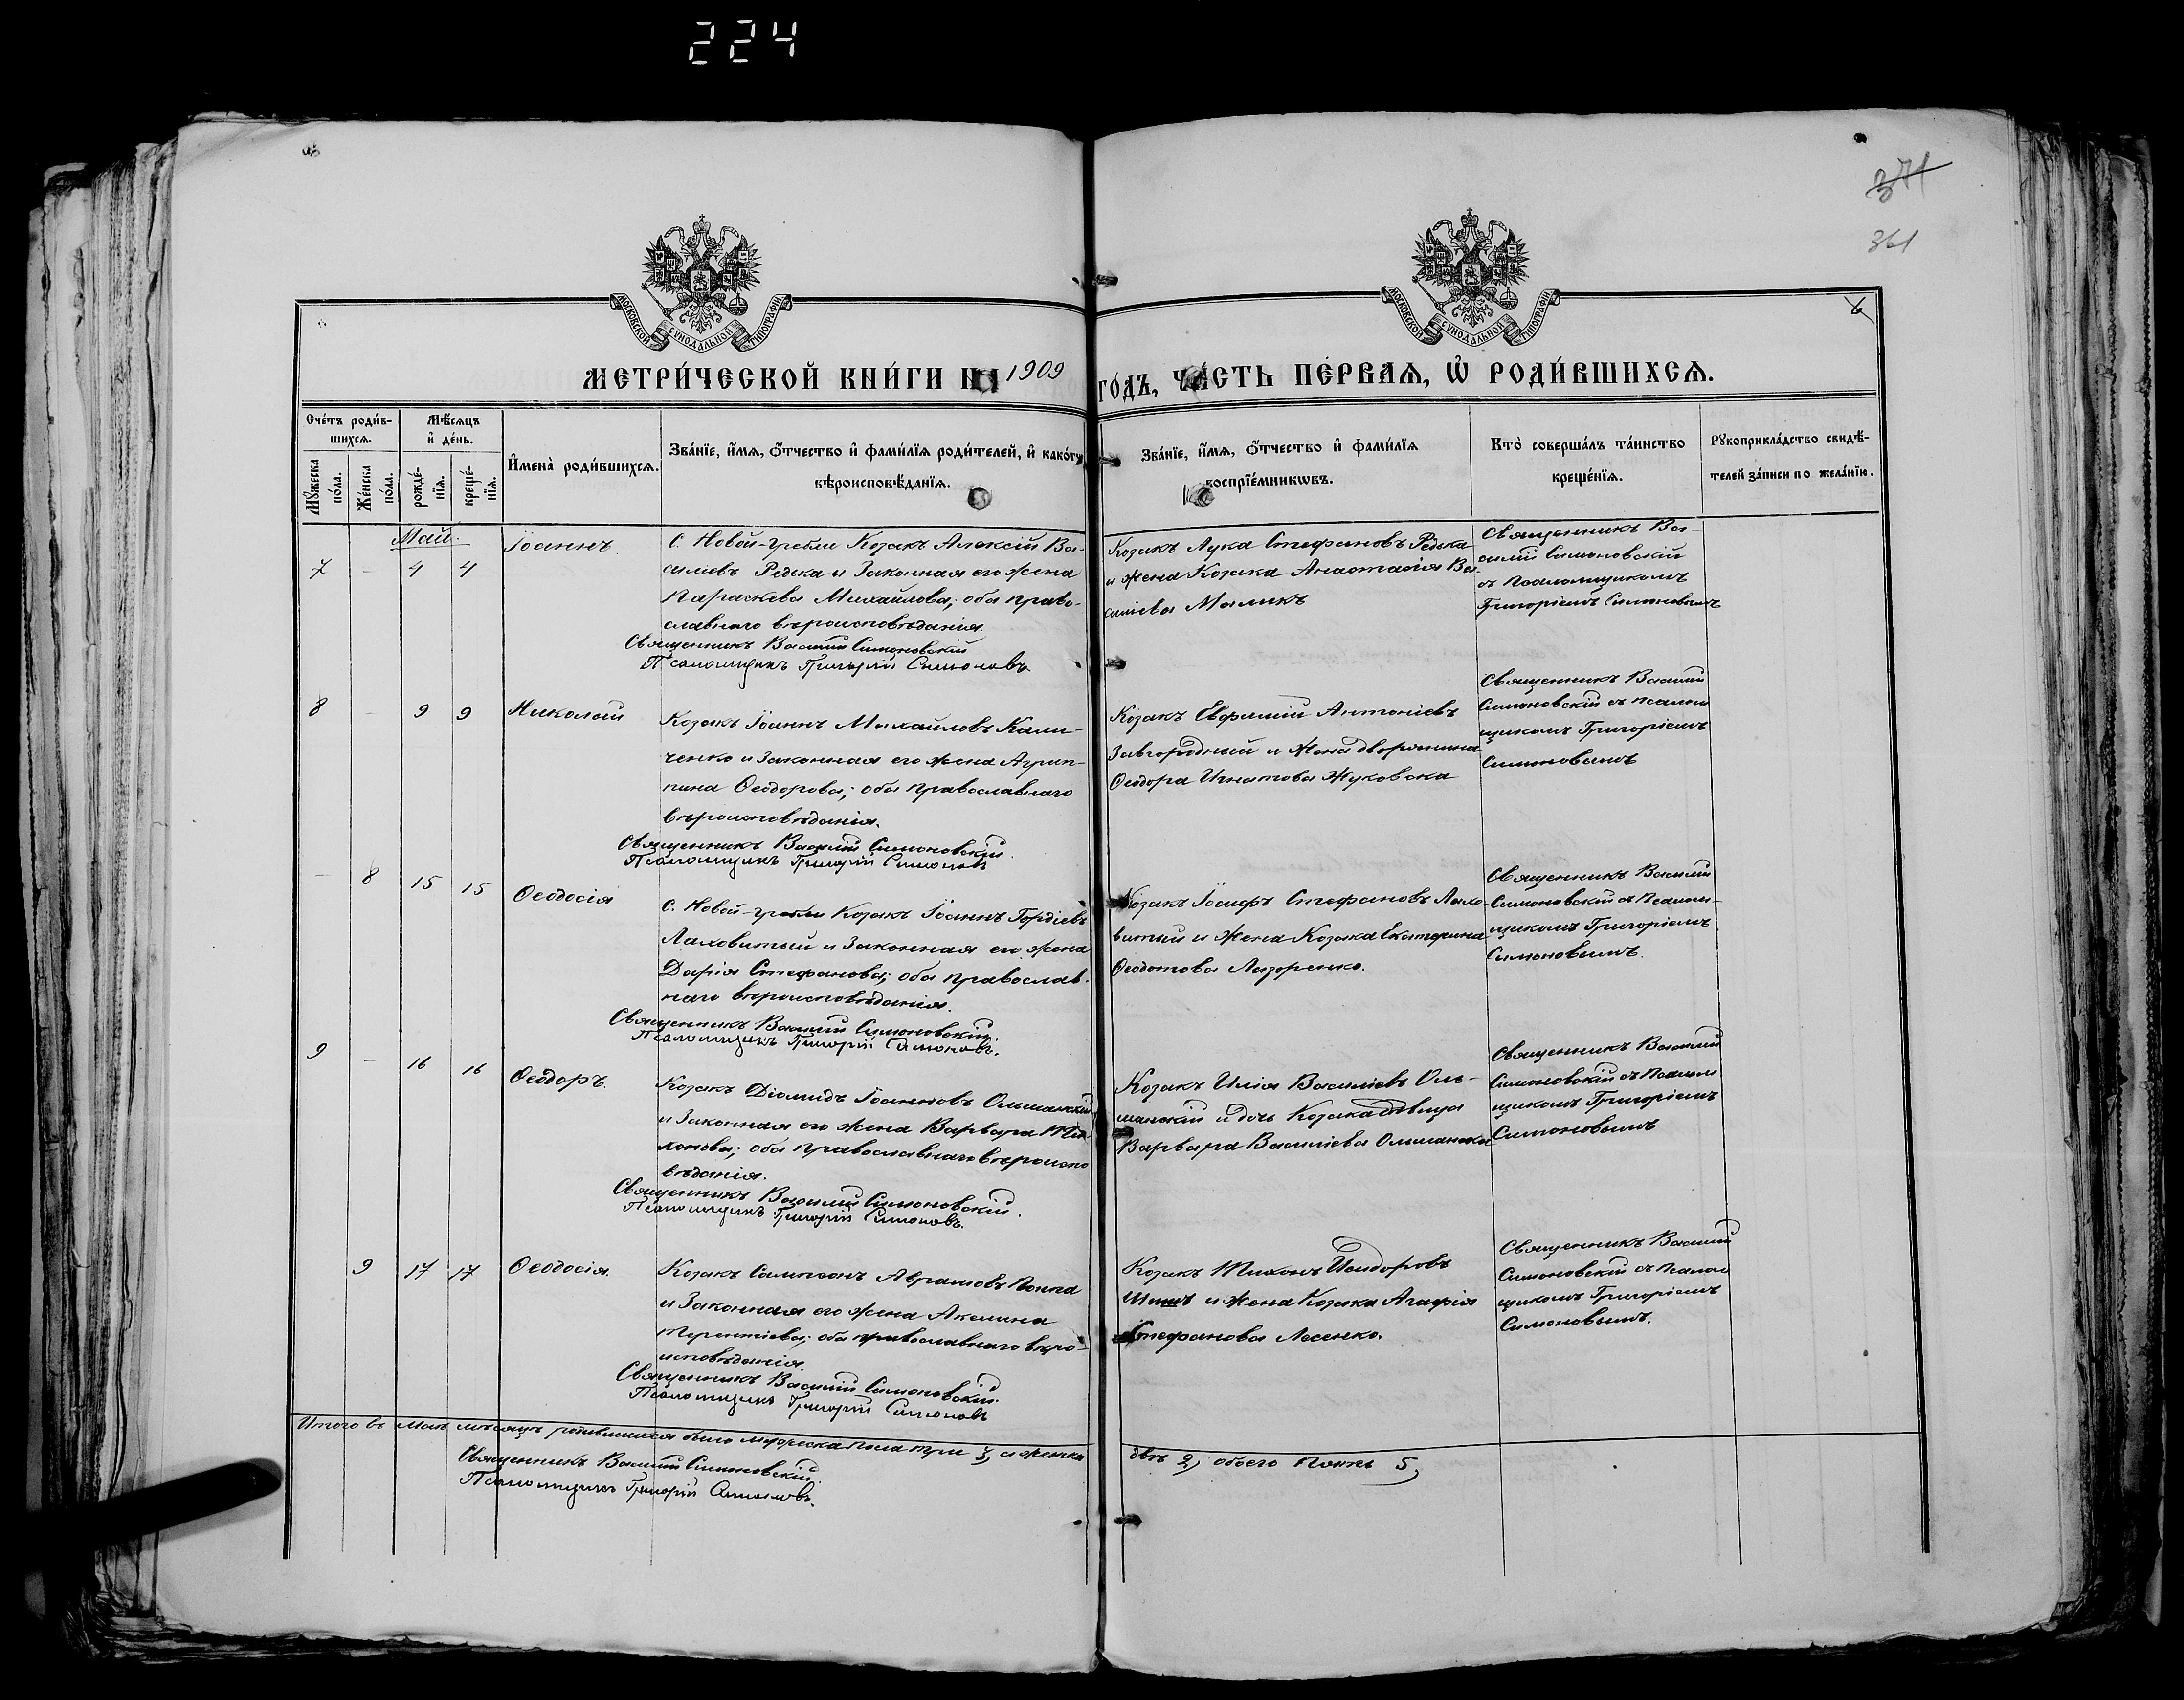 224
371
361
6
МОСКОВСКОЙ СѴНОДАЛЬНОЙ ТИПОГРАФІИ
МОСКОВСКОЙ СѴНОДАЛЬНОЙ ТИПОГРАФІИ
МЕТРИ́ЧЕСКОЙ КНИ́ГИ НА 1909 ГО́ДЪ, ЧА́СТЬ ПЕ́РВАѦ, Ѡ҆ РОДИ́ВШИХСѦ.
Сче́тъ роди́в-
шихсѧ.
Мꙋ́жеска по́ла.
Же́нска по́ла.
Мѣ́сѧцъ
и҆ де́нь.
рожде́-
нїѧ.
креще́-
нїѧ.
И҆мена̀ роди́вшихсѧ.
Зва́нїе, и҆́мѧ, ѻ҆́тчество и҆ фами́лїѧ роди́телей, и҆ како́гѡ
вѣроисповѣ́данїѧ.
Зва́нїе, и҆́мѧ, ѻ҆́тчество и҆ фами́лїѧ
воспрїе́мникѡвъ.
Кто̀ соверша́лъ та́инство
креще́нїѧ.
Рꙋкоприкла́дство свидѣ́-
телей за́писи по жела́нїю.
Май.
7 - 4 4
Іоаннъ
С. Новой-Гребли Козакъ Алексій Ва-
силіевъ Редька и Законная его жена
Параскева Михайлова; оба право-
славнаго вѣроисповѣданія.
Священникъ Василій Симоновскій
Псаломщикъ Григорій Симоновъ.
Козакъ Лука Стефановъ Редька
и жена Козака Анастасія Ва-
силіева Маликъ
Священникъ Ва-
силій Симоновскій
съ Псаломщикомъ
Григоріемъ Симоновымъ
8 - 9 9
Николай
Козакъ Іоаннъ Михайловъ Кали-
ченко и Законная его жена Агрип-
пина Ѳеодорова; оба православнаго
вѣроисповѣданія.
Священникъ Василій Симоновскій.
Псаломщикъ Григорій Симоновъ
Козакъ Евфимій Антоніевъ
Завгородный и Жена дворянина
Ѳеодора Игнатова Жуковска
Священникъ Василій
Симоновскій съ Псалом
щикомъ Григоріемъ
Симоновымъ
- 8 15 15
Ѳеодосія
С. Новой-Гребли Козакъ Іоаннъ Гордіевъ
Лаховитый и Законная его жена
Дарія Стефанова; оба православ-
наго вѣроисповѣданія.
Священникъ Василій Симоновскій.
Псаломщикъ Григорій Симоновъ.
Козакъ Іосифъ Стефановъ Лахо-
витый и Жена Козака Екатерина
Ѳеодотова Лазоренко.
Священникъ Василій
Симоновскій съ Псалом-
щикомъ Григоріемъ
Симоновымъ.
9 - 16 16
Ѳеодоръ.
Козакъ Діомидъ Іоанновъ Олшанскій
и Законная его жена Варвара Ти-
хонова; оба православнаго вѣроиспо
вѣданія.
Священникъ Василій Симоновскій.
Псаломщикъ Григорій Симоновъ.
Козакъ Илія Василіевъ Оль-
шанскій и дочь Козака дѣвица
Варвара Василіева Олшанска
Священникъ Василій
Симоновскій съ Псалом
щикомъ Григоріемъ
Симоновымъ
9 17 17
Ѳеодосія.
Козакъ Сампсонъ Аврамовъ
и Законная его жена Акилина
Терентіева; оба православнаго вѣро-
исповѣданія.
Священникъ Василій Симоновскій.
Псаломщикъ Григорій Симоновъ
Козакъ Тихонъ Исидоровъ
и жена Козака Агафія
Стефанова Лесенко.
Священникъ Василій
Симоновскій съ Псалом
щикомъ Григоріемъ
Симоновымъ.
Итого въ Маѣ мѣсяцѣ родившихся было мужеска пола три 3, а женска двѣ 2, обоего пола 5,
Священникъ Василій Симоновскій.
Псаломщикъ Григорій Симоновъ.